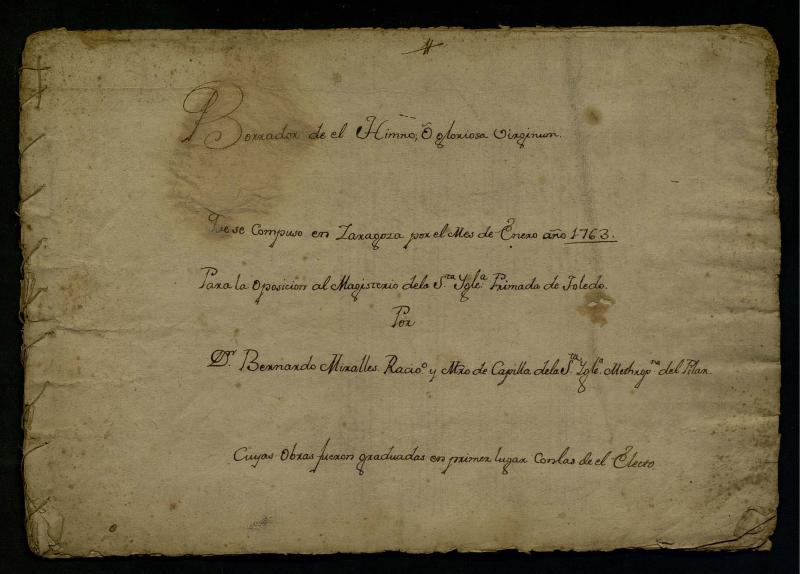 Borrador de el Himno, O gloriosa Virginum.
Qe se Compuso en Zaragoza por el Mes de Enero año 1763.
Para la Oposicion al Magisterio dela S.ta Ygle.a Primada de Toledo.
Por
Dn. Bernardo Miralles. Racio.o y Mro de Capilla dela S.ta Ygle.a Methrop.na del Pilar.
Cuyas Obras fueron graduadas en primer lugar Conlas de el Electo.